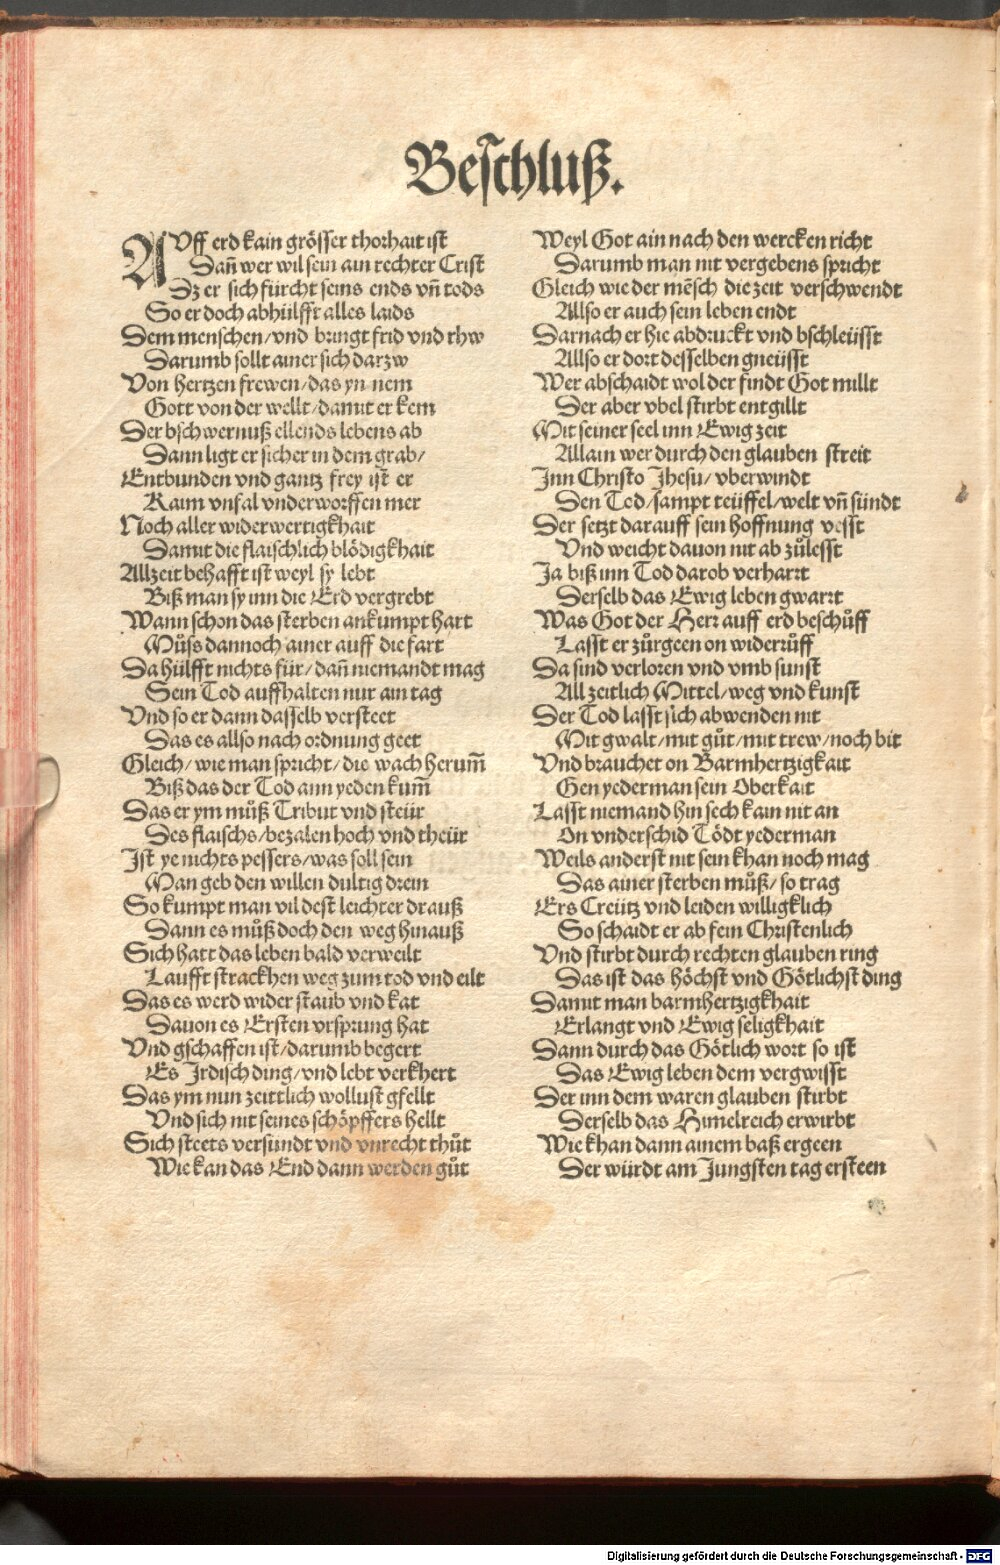 Beschluß.
AVff erd kain grösser thorhait ist
Dañ wer wil sein ain rechter Crist
Dz er sich fürcht seins ends vñ tods
So er doch abhülfft alles laids
Dem menschen/vnd bringt frid vnd rhw
Darumb sollt ainer sich darzw
Von hertzen frewen/das yn nem
Gott von der wellt/damit er kem
Der bschwernuß ellends lebens ab
Dann ligt er sicher in dem grab/
Entbunden vnd gantz frey ist er
Kaim vnfal vnderworffen mer
Noch aller widerwertigkhait
Damit die flaischlich blödigkhait
Allzeit behafft ist weyl sy lebt
Biß man sy inn die Erd vergrebt
Wann schon das sterben ankumpt hart
Müss dannoch ainer auff die fart
Da hülfft nichts für/dañ niemandt mag
Sein Tod auffhalten nur ain tag
Vnd so er dann dasselb versteet
Das es allso nach ordnung geet
Gleich/wie man spricht/die wach herum̃
Biß das der Tod ann yeden kum̃
Das er ym müß Tribut vnd steür
Des flaischs/bezalen hoch vnd theür
Ist ye nichts pessers/was soll sein
Man geb den willen dultig drein
So kumpt man vil dest leichter drauß
Dann es müß doch den weg hinauß
Sich hatt das leben bald verweilt
Laufft strackhen weg zum tod vnd eilt
Das es werd wider staub vnd kat
Dauon es Ersten vrsprung hat
Vnd gschaffen ist/darumb begert
Es Irdisch ding/vnd lebt verkhert
Das ym nun zeittlich wollust gfellt
Vnd sich nit seines schöpffers hellt
Sich steets versündt vnd vnrecht thůt
Wie kan das End dann werden gůt
Weyl Got ain nach den wercken richt
Darumb man nit vergebens spricht
Gleich wie der mẽsch die zeit verschwendt
Allso er auch sein leben endt
Darnach er hie abdruckt vnd bschleüsst
Allso er dort desselben gneüsst
Wer abschaidt wol der findt Got millt
Der aber vbel stirbt entgillt
Mit seiner seel inn Ewig zeit
Allain wer durch den glauben streit
Inn Christo Jhesu/vberwindt
Den Tod/sampt teüffel/welt vñ sündt
Der setzt darauff sein hoffnung vesst
Vnd weicht dauon nit ab zůlesst
Ja biß inn Tod darob verharrt
Derselb das Ewig leben gwarrt
Was Got der Herr auff erd beschůff
Lasst er zůrgeen on widerrůff
Da sind verloren vnd vmb sunst
All zeitlich Mittel/weg vnd kunst
Der Tod lasst sich abwenden nit
Mit gwalt/mit gůt/mit trew/noch bit
Vnd brauchet on Barmhertzigkait
Gen yederman sein Oberkait
Lasst niemand hin sech kain nit an
On vnderschid Tödt yederman
Weils anderst nit sein khan noch mag
Das ainer sterben můß/so trag
Ers Creütz vnd leiden willigklich
So schaidt er ab fein Christenlich
Vnd stirbt durch rechten glauben ring
Das ist das höchst vnd Götlichst ding
Damit man barmhertzigkhait
Erlangt vnd Ewig seligkhait
Dann durch das Götlich wort so ist
Das Ewig leben dem vergwisst
Der inn dem waren glauben stirbt
Derselb das Himelreich erwirbt
Wie khan dann ainem baß ergeen
Der würdt am Jungsten tag ersteen
Digitalisierung gefördert durch die Deutsche Forschungsgemeinschaft - DFG